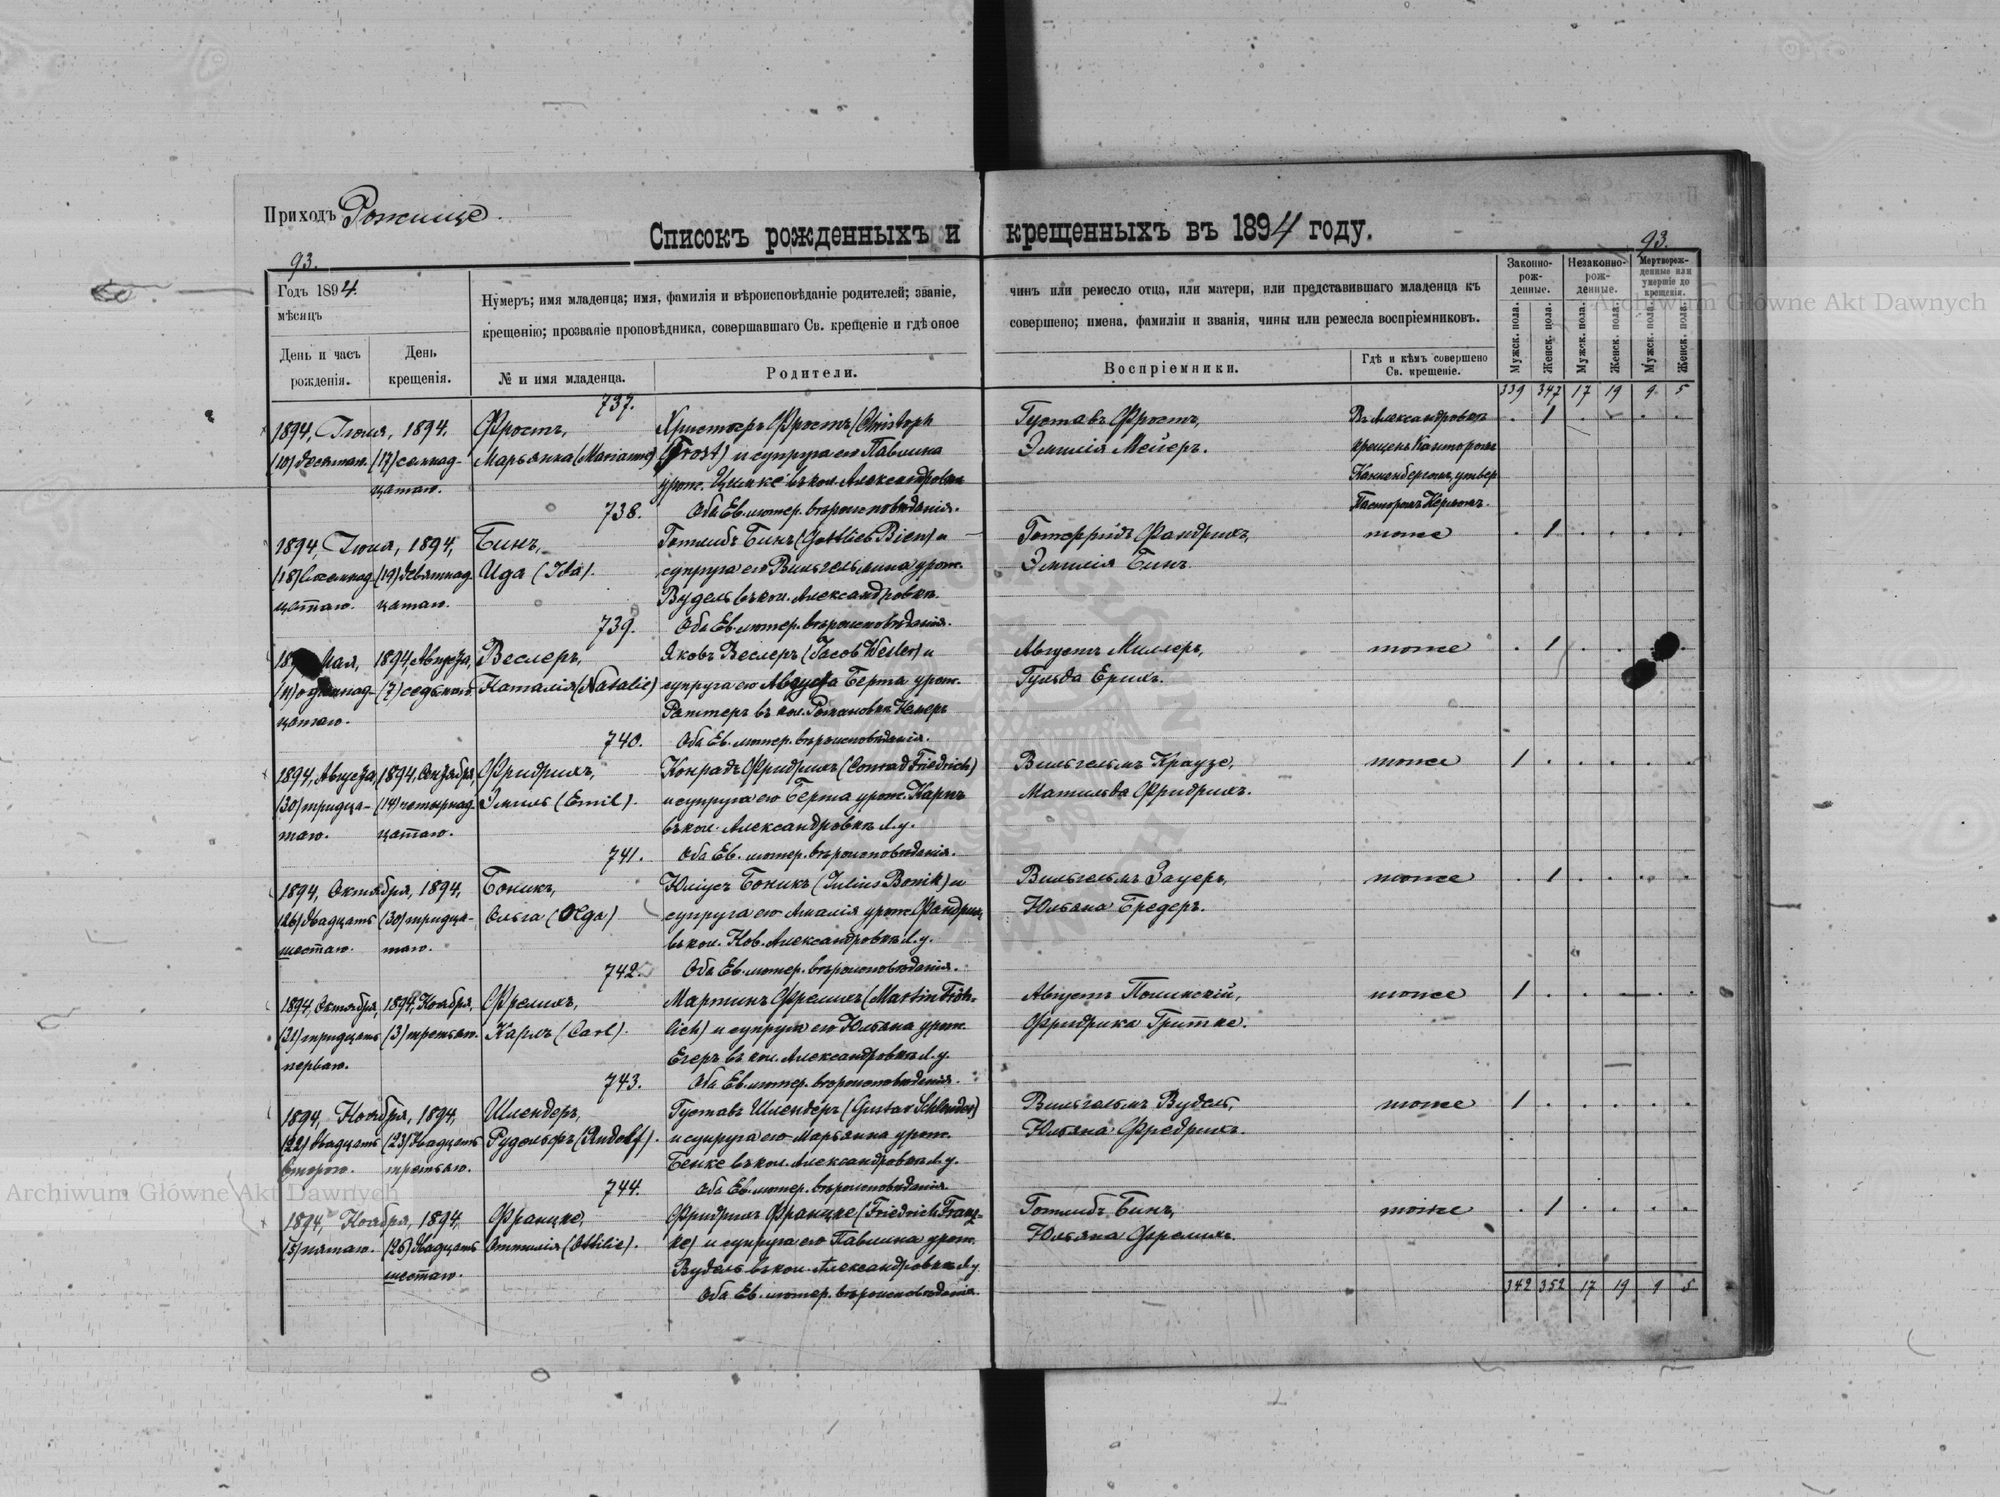 Приходъ Рожище.
Списокъ рожденныхъ и крещенныхъ въ 1894 году.
93.
93.
Годъ 1894.
мѣсяцъ
День и часъ рожденія.
День крещенія.
Нумеръ; имя младенца; имя, фамилія и вѣроисповѣданіе родителей; званіе, чинъ или ремесло отца, или матери, или представившаго младенца къ
крещенію; прозваніе проповѣдника, совершавшаго Св. крещеніе и гдѣ оное совершено; имена, фамиліи и званія, чины или ремесла воспріемниковъ.
№ и имя младенца.
Родители.
Воспріемники.
Гдѣ и кѣмъ совершено Св. крещеніе.
Законно-рож-денные.
Незаконно-рож-денные.
Мертворож-денные или умершіе до крещенія.
Мужск. пола.
Женск. пола.
Мужск. пола.
Женск. пола.
Мужск. пола.
Женск. пола.
339 347 17 19 9 5
737.
1894, Іюля, 1894, Фростъ, Христофъ Фростъ (Christoph Густавъ Фростъ, Въ Александровкѣ . 1 . . . .
(10) десятаго (17) семнад- Марьянна (Marianne) Frost) и супруга его Павлина Эмилія Мейеръ. крещенъ Канторомъ
цатаго. урож. Цимке въ кол. Александровкѣ Канненбергомъ, утвер.
738. Оба Ев. лютер. вѣроисповѣданія. Пасторомъ Керномъ.
1894, Іюля, 1894, Бинъ, Готлибъ Бинъ (Gottlieb Bien) и Готфридъ Фандрихъ, тоже . 1 . . . .
(18) восемнад- (19) девятнад- Ида (Ida). супруга его Вильгельмина урож. Эмилія Бинъ.
цатаго. цатаго. Вудель въ кол. Александровкѣ.
739. Оба Ев. лютер. вѣроисповѣданія.
Мая, 1894, Августа, Веслеръ, Яковъ Веслеръ (Jacob Wesler) и Августъ Миллеръ, тоже . 1 . . . .
(11) одиннад- (7) седьмаго Наталія (Natalie) супруга его Августа Берта урож. Гульда Ерихъ.
цатаго. Раттеръ въ кол. Романовкѣ
740. Оба Ев. лютер. вѣроисповѣданія.
1894, Августа, 1894, Сентября, Фридрихъ, Конрадъ Фридрихъ (Conrad Friedrich) Вильгельмъ Краузе, тоже 1 . . . . .
(30) тридца- (14) четырнад- Эмиль (Emil). и супруга его Берта урож. Карпъ Матильда Фридрихъ.
таго. цатаго. въ кол. Александровкѣ Л. у.
741. Оба Ев. лютер. вѣроисповѣданія.
1894, Октября, 1894, Боникъ, Юліусъ Боникъ (Julius Bonik) и Вильгельмъ Зауеръ, тоже . 1 . . . .
(26) двадцать (30) тридца- Ольга (Olga) супруга его Амалія урож. Фандрихъ Юльяна Бредеръ.
шестаго. таго. въ кол. Нов. Александровкѣ Л. у.
742. Оба Ев. лютер. вѣроисповѣданія.
1894, Октября, 1894, Ноября, Фрелихъ, Мартинъ Фрелихъ (Martin Fröh- Августъ Полинскій, тоже 1 . . . . .
(31) тридцать (3) третьяго. Карлъ (Carl). lich) и супруга его Юльяна урож. Фридрика Гритке.
перваго. Егеръ въ кол. Александровкѣ Л. у.
743. Оба Ев. лютер. вѣроисповѣданія.
1894, Ноября, 1894, Шлендеръ, Густавъ Шлендеръ (Gustav Schlender) Вильгельмъ Вудель, тоже 1 . . . . .
(22) двадцать (23) двадцать Рудольфъ (Rudolf). и супруга его Марьянна урож. Юльяна Фредрихъ.
второго. третьяго. Бенке въ кол. Александровкѣ Л. у.
744. Оба Ев. лютер. вѣроисповѣданія
1894, Ноября, 1894, Францке, Фридрихъ Францке (Friedrich Franz- Готлибъ Бинъ, тоже . 1 . . . .
(5) пятаго. (26) двадцать Оттилія (Ottilie). ke) и супруга его Павлина урож. Юльяна Фрелихъ.
шестаго. Вудель въ кол. Александровкѣ Л. у
Оба Ев. лютер. вѣроисповѣданія.
342 352 17 19 9 5
Archiwum Główne Akt Dawnych
Archiwum Główne Akt Dawnych